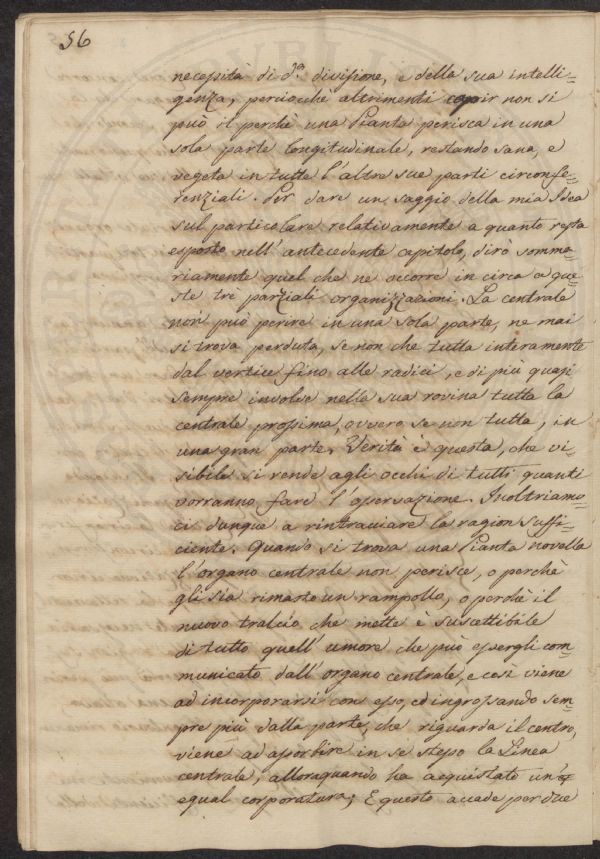 56
necessità di d.ª divisione, e della sua intelli=
genza, perciocchè altrimenti capir non si
può il perchè una Pianta perisca in una
sola parte longitudinale, restando sana, e
vegeta in tutte l'altre sue parti circonfe=
renziali. Per dare un saggio della mia Idea
sul particolare relativamente a quanto resta
esposto nell'antecedente capitolo, dirò somma=
riamente quel che ne occorre in circa a que=
ste tre parziali organizzazioni. La centrale
non può perire in una sola parte, ne mai
si trova perduta, se non che tutta interamente
dal vertice fino alle radici, e di più quasi
sempre involve nella sua rovina tutta la
centrale prossima, ovvero se non tutta, in
una gran parte. Verità è questa, che vi=
sibile si rende agli occhi di tutti quanti
vorranno fare l'osservazione. Inoltriamo=
ci dunque a rintracciare la ragion suffi=
ciente. Quando si trova una Pianta novella
l'organo centrale non perisce, o perchè
gli sia rimasto un rampollo, o perchè il
nuovo tralcio che mette è suscettibile
di tutto quell'umore che può essergli com=
municato dall'organo centrale, e così viene
ad incorporarsi con esso, ed ingrossando sem=
pre più dalla parte, che riguarda il centro,
viene ad assorbire in se stesso la Linea
centrale, alloraquando ha acquistato un'
egual corporatura; E questo accade per due